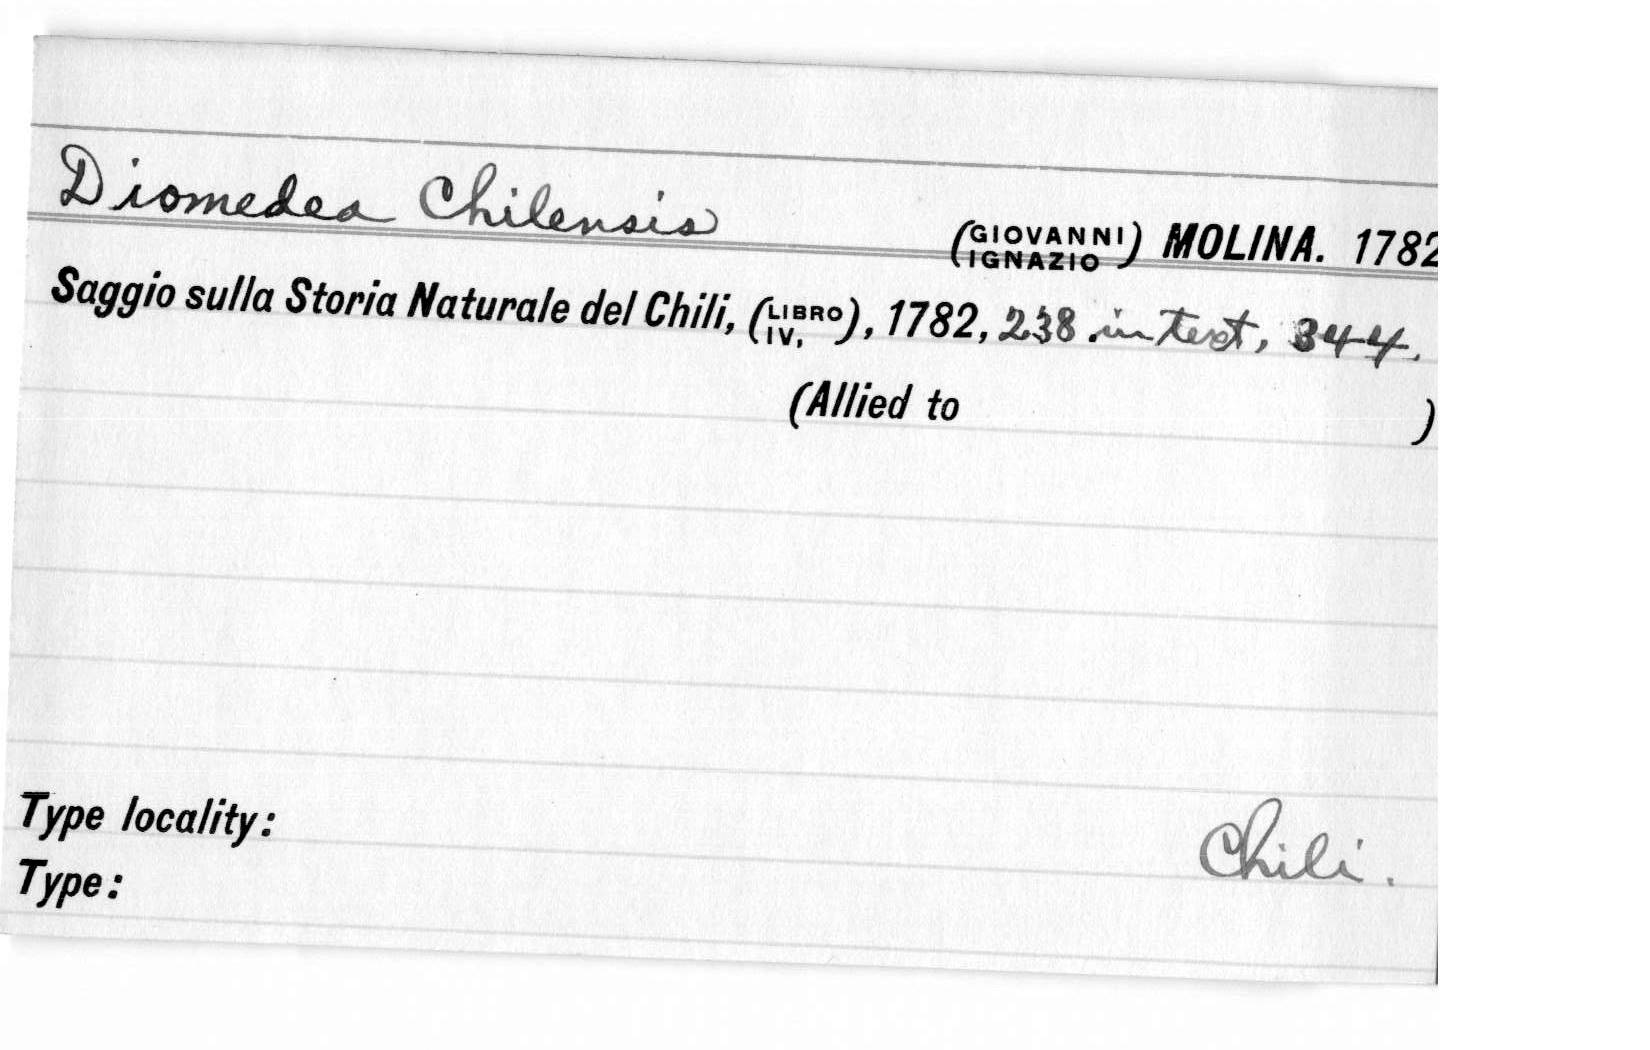 Diomedea Chilensis (GIOVANNI IGNAZIO) MOLINA. 1782
Saggio sulla Storia Naturale del Chili, (LIBRO IV,), 1782, 238 in text, 344.
(Allied to )
Type locality: Chili.
Type: